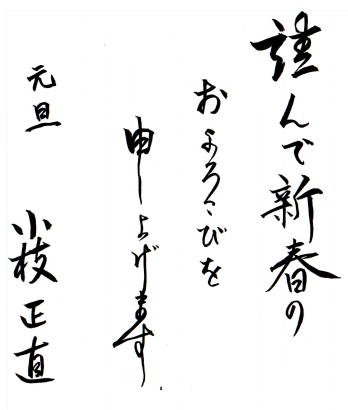 謹んで新春の
およろこびを
申し上げます
元旦
小枝正直